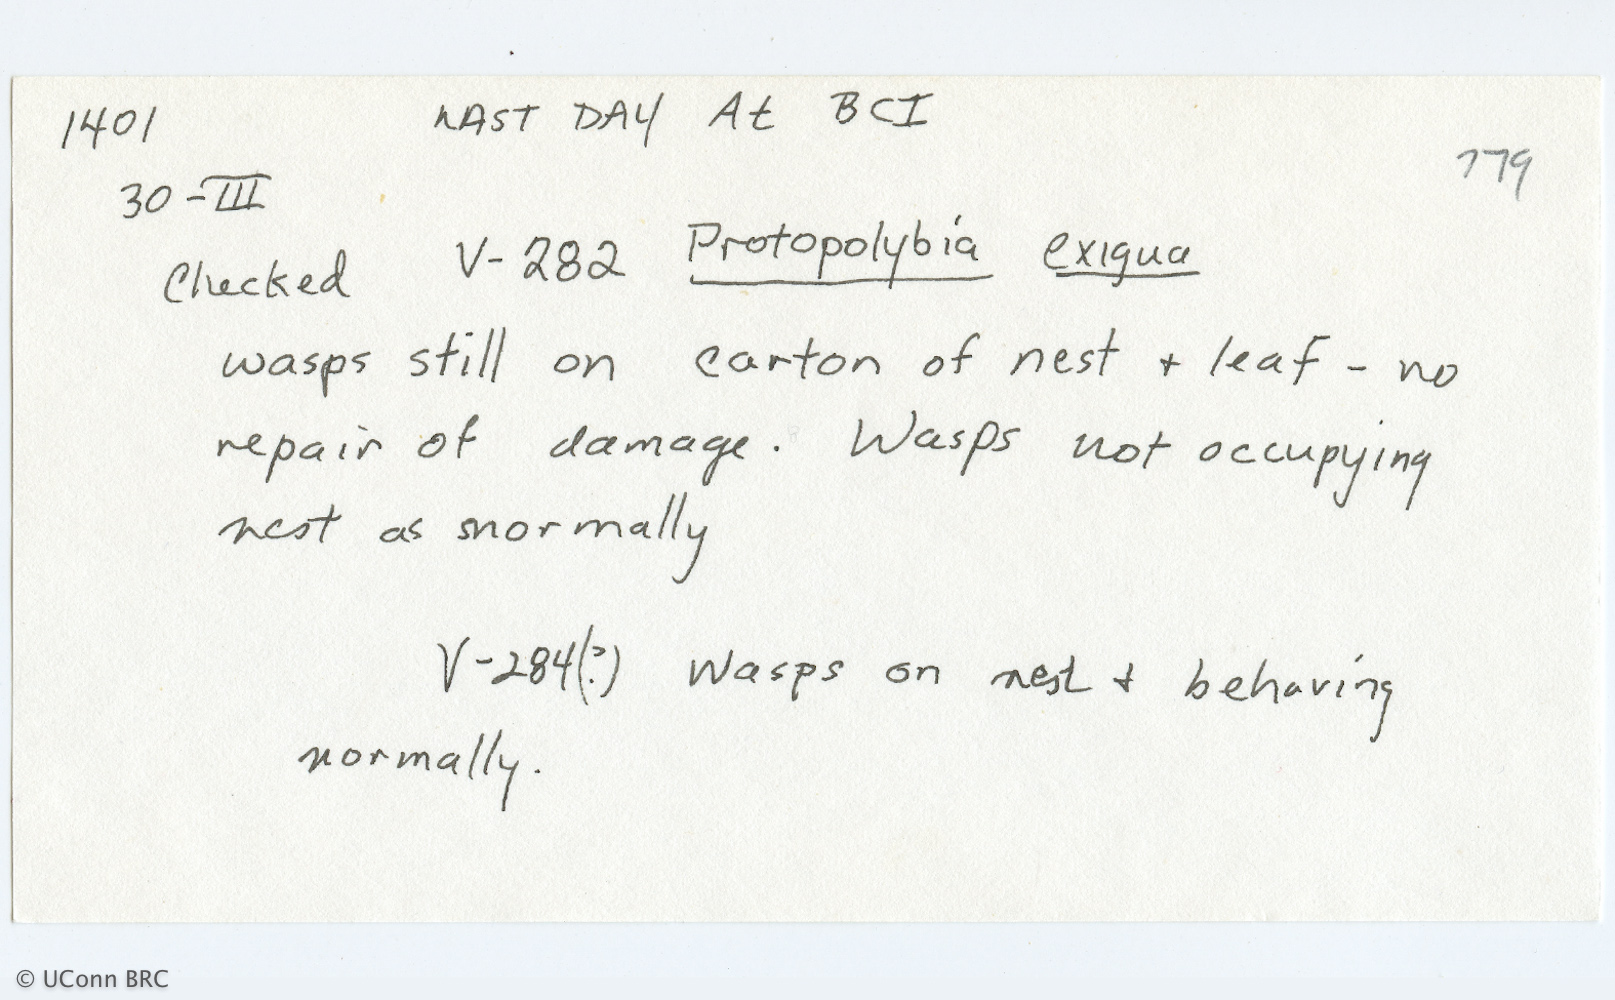 1401 LAST DAY At BCI
779
30-III
Checked V-282 Protopolybia exigua
wasps still on carton of nest + leaf - no
repair of damage. Wasps not occupying
nest as normally
V-284(?) Wasps on nest + behaving
normally.
© UConn BRC